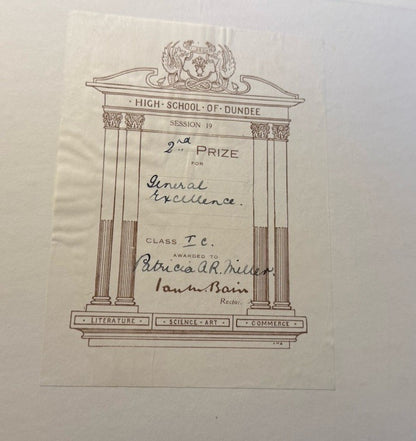 HIGH · SCHOOL · OF · DUNDEE
SESSION 19
2nd PRIZE
FOR
General
Excellence.
CLASS I c.
AWARDED TO
Patricia A.R. Miller.
Ian M. Bain
Rector.
· LITERATURE · · SCIENCE · ART · · COMMERCE ·